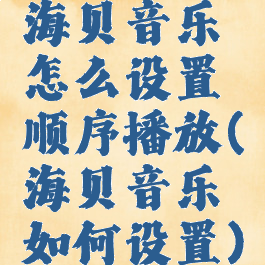 海贝音乐
怎么设置
顺序播放(
海贝音乐
如何设置)